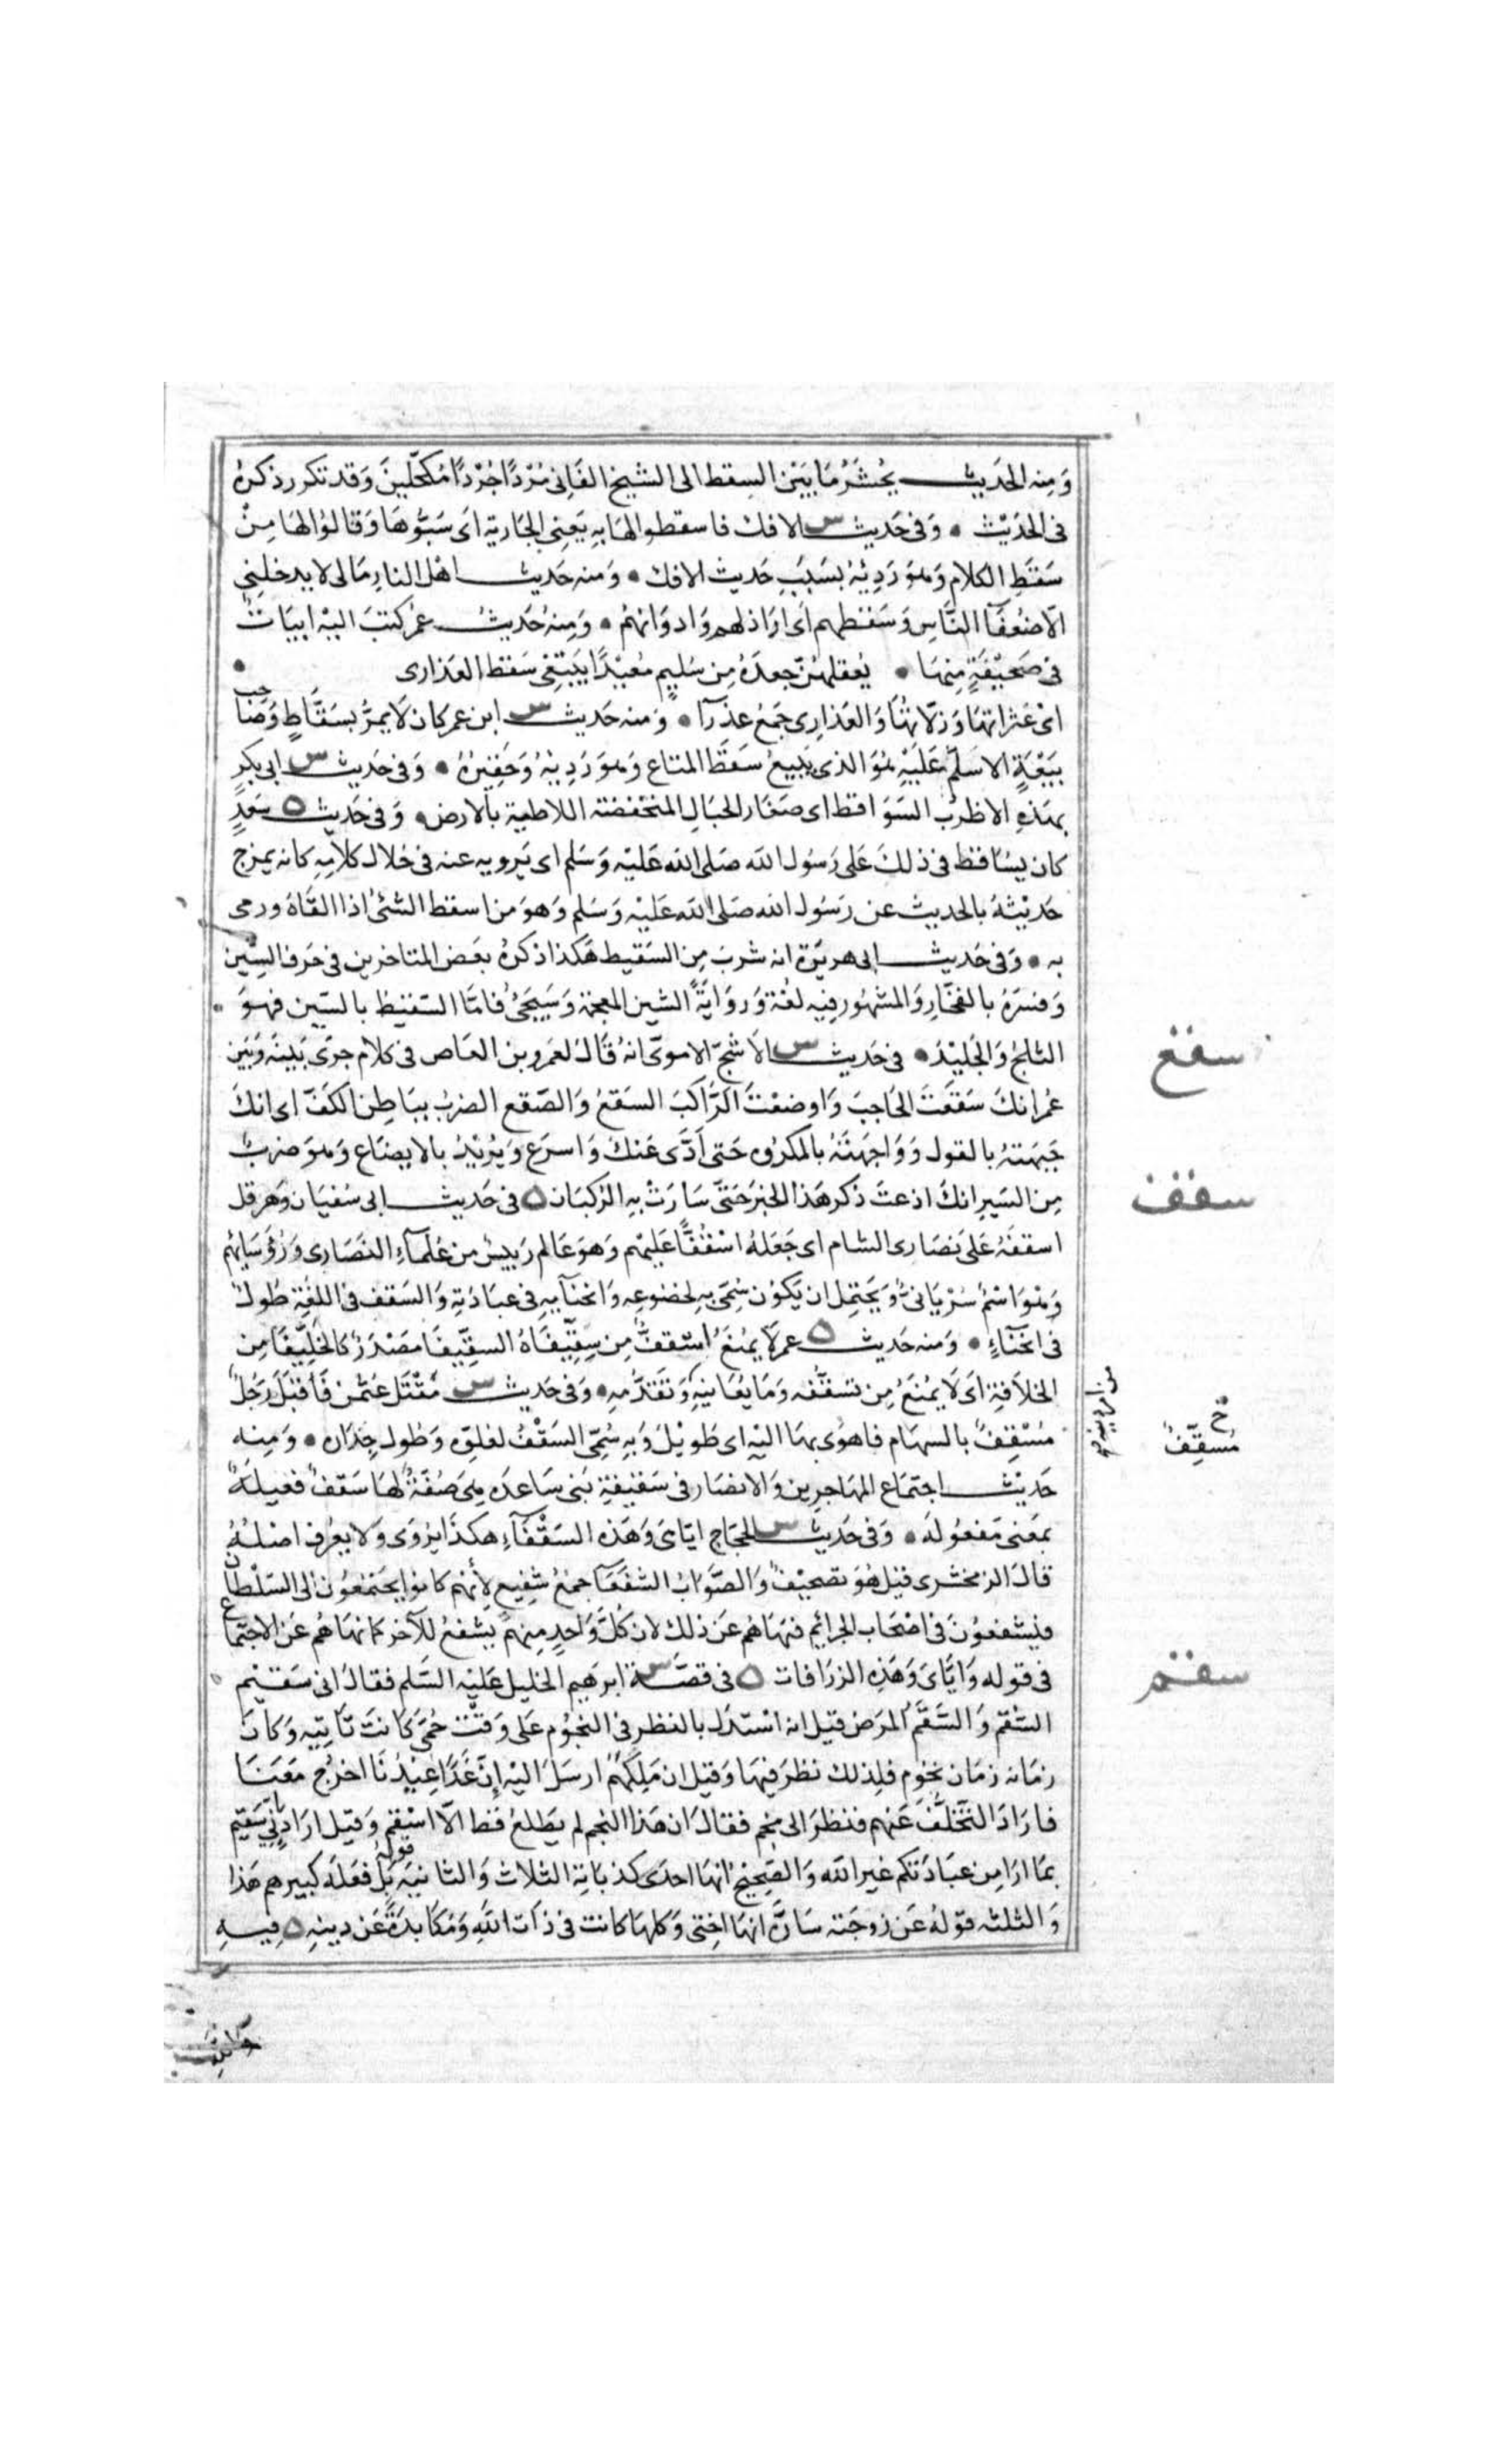 وَمِنه الحَديث يُحشَرُ مَا بَيْنَ السِقط الى الشيخ الفَانِى مُرْدًا جُرْدًا مُكَحَّلِينَ وَقد تكرر ذكرهُ
فى الحَدَيْث • وَفى حَديث س الافك فاسقطوا لهَا بِهِ يَعنِى الجَارية اَى سَبُّوهَا وَقالوُا لهَا مِنْ
سَقَطِ الكلام وَهوَ رَدِيئهُ بسَبَبِ حَديث الافك • وَمنه حَديث اهْل النارِ مَا لى لا يدخلنِى
الّا ضعُفآ النَّاسِ وَسَقطهم اَى ارَاذلهم وَادوَانهمُ • وَمِنهُ حَديثُ عُمر كتبَ اليْه ابيَاتٌ
فى صَحيْفَةٍ مِنهَا • يُعقلهُنّ جعدَةُ مِن سُليمٍ مُعيْدًا يَبتَغى سَقط العَذارى •
اىْ عَثراتهَا وَزلّاتهُا وَالعَذارِى جَمعُ عذرآ • وَمنه حَديث س ابن عمر كان لَا يمرُّ بسَقَّاطٍ وَصَا
حب
بيَعْةٍ الا سَلّم عَليَهِْ هُوَ الذى يَبيعُ سَقَطَ المتاع وَهوَ رَدِيئهُ وَحَقِيرهُ • وَفى حَديث س ابى بكرٍ
بهَذهِ الاظرُب السَوَاقط اى صَغار الجبَالِ المنخفضة اللاطية بالارض • وَفى حَديث ه سَعدٍ
كان يسُاقط فى ذلكَ عَلى رَسُول الله صَلى الله عَليْه وَسَلم اى يَرويه عنه فى خلال كلامِهِ كانه يمزج
حَديْثهُ بالحديث عن رَسُول الله صَلى الله عَليْه وَسَلم وَهوَ من اسقط الشئ اذا القَاهُ ورمى
به • وَفى حَديث ابى هريَرة انه شربَ مِن السَقيط هَكذا ذكرهُ بعَض المتاخرين فى حَرف السِّين
وَفسَرهُ بالفخّارِ وَالمشهُور فيه لغُة وَروَايَةً الشين المعجمة وَسَيجَئُ فامّا السَقيط بالسّين فهوَ
الثلجُ وَالجَليْدُ • فى حَديث س الاَشَجّ الاموىّ انهُ قالَ لعَمرو بن العَاص فى كلام جرَى بَينهَ وَبَيَن
عُمر انكَ سَقَعتَ الحَاجبَ وَاوضعْتَ الرَّاكبَ السَقعُ وَالصّقع الضربُ ببَاطِن الكفّ اى انكَ
جَبَهتهُ بالقول وَوَاجهَتهُ بالمكروُه حَتى اَدَّى عَنكَ وَاسرَع وَيرُيْدُ بالايضاع وَهوَ ضربٌ
مِن السَيرِ انكَ اذعتَ ذكر هَذا الخبَر حَتّى سَارَتْ بهِ الركبَان ه فى حَديث ابى سُفيَان وَهرقل
اسقفَهُ عَلى نَصَارى الشام اى جَعَلهُ اسْقُفًّا عَليهْم وَهوَ عَالم رَييسٌ من عُلمآءِ النصَارى وَرُؤسَايهُم
وَهوَ اسْمٌ سُرْيَانىٌّ وَيَحتمِل ان يَكوُن سُمّىَ بهِ لخضوُعِه وَانحنآيهِ فى عبَادَتِهِ وَالسَقف فى اللغُة طُولٌ
فى انحنآءٍ • وَمنه حَديث ه عمر لَا يمُنعَُ اسْقفٌّ مِن سِقّيِفَاهُ السقِّيفَا مصَدَرٌ كالخِلِّيفا مِن
الخلَافةِ اىَ لَا يمُنعَُ مِن تسَقّفُه وَمَا يعُانيهِ وَتقَدّمهِ • وَفى حَديث س مَقتلَ عثمٰن فاقبَلَ رَجُلٌ
مُسْقِفٌ بالسهَام فاهوىَ بهَا اليْه اى طَوِيْلٌ وَبهِ سُمّىَ السَقْفُ لعلوّه وَطوُل جِدَاره • وَمِنه
حَديْث اجتمَاع المهَاجرِين وَالانصَار فى سَقيْفةِ بَنى سَاعدَه هِىَ صُفّةٌ لهَا سَقفٌ فعيلَةٌ
بمعَنى مَفعوُلة • وَفى حَديث س الحجَاج ايّاىَ وَهَذه السَقْفَآءِ هكذَا يرُوَى وَلا يعُرف اصْلهُُ
قالَ الزمخشرى قيل هُوَ تصَحيْفٌ وَالصّوَابُ الشفَعَآ جمعُ شفِيعٍ لأنهم كانوُا يجَتمعُون الى السّلطان
فيشفعوُنَ فى اصْحَاب الجرايمِ فنهَاهُم عَن ذلك لان كلَّ وَاحدٍ مِنهمُ يشفعُ للآخر كما نهَاهُم عَن الاجتماع
فى قوله وَايّاىَ وَهَذِهِ الزرَافات ه فى قصّة س ابرهيم الخليل عَليْه السَّلم فقالَ انى سَقيْم
السُّقم وَالسَّقَمُ المرَض قيل انه اسْتدَل بالنظر فى النجوُم على وَقتْ حُمّىً كانتَ تَاتيِه وَكانَ
زمَانه زمَان نجوُمٍ فلذلك نظرَ فيهَا وَقيْل ان مَلِكهَمُ ارسَلَ اليْه إِنّ غَدًا عيْدُنَا اخرُج معَنَا
فارَادَ التَّخلُّفَ عَنهم فنظرَ الى نجم فقالَ ان هَذا النجم لم يَطلعُ قط الّا اسْقم وَقيْل ارَادَ انِّى سَقيم
بمَا ارَا مِن عبَادَتكم غير الله وَالصّحِيْحُ انهَا احدَى كذبَاتهِ الثلاث وَالثانيَة قوله بَل فعَلهُ كبيرهم هَذا
وَالثلثه قوَلهُ عَن زوجَته سَارَّة انهَا اختى وَكلهَا كانت فى ذَات اللهِ وَمُكابدَةً عَن دينهِ ه فِيهِ
سقع
سقف
خ
مُسقِّفٌ
سقم